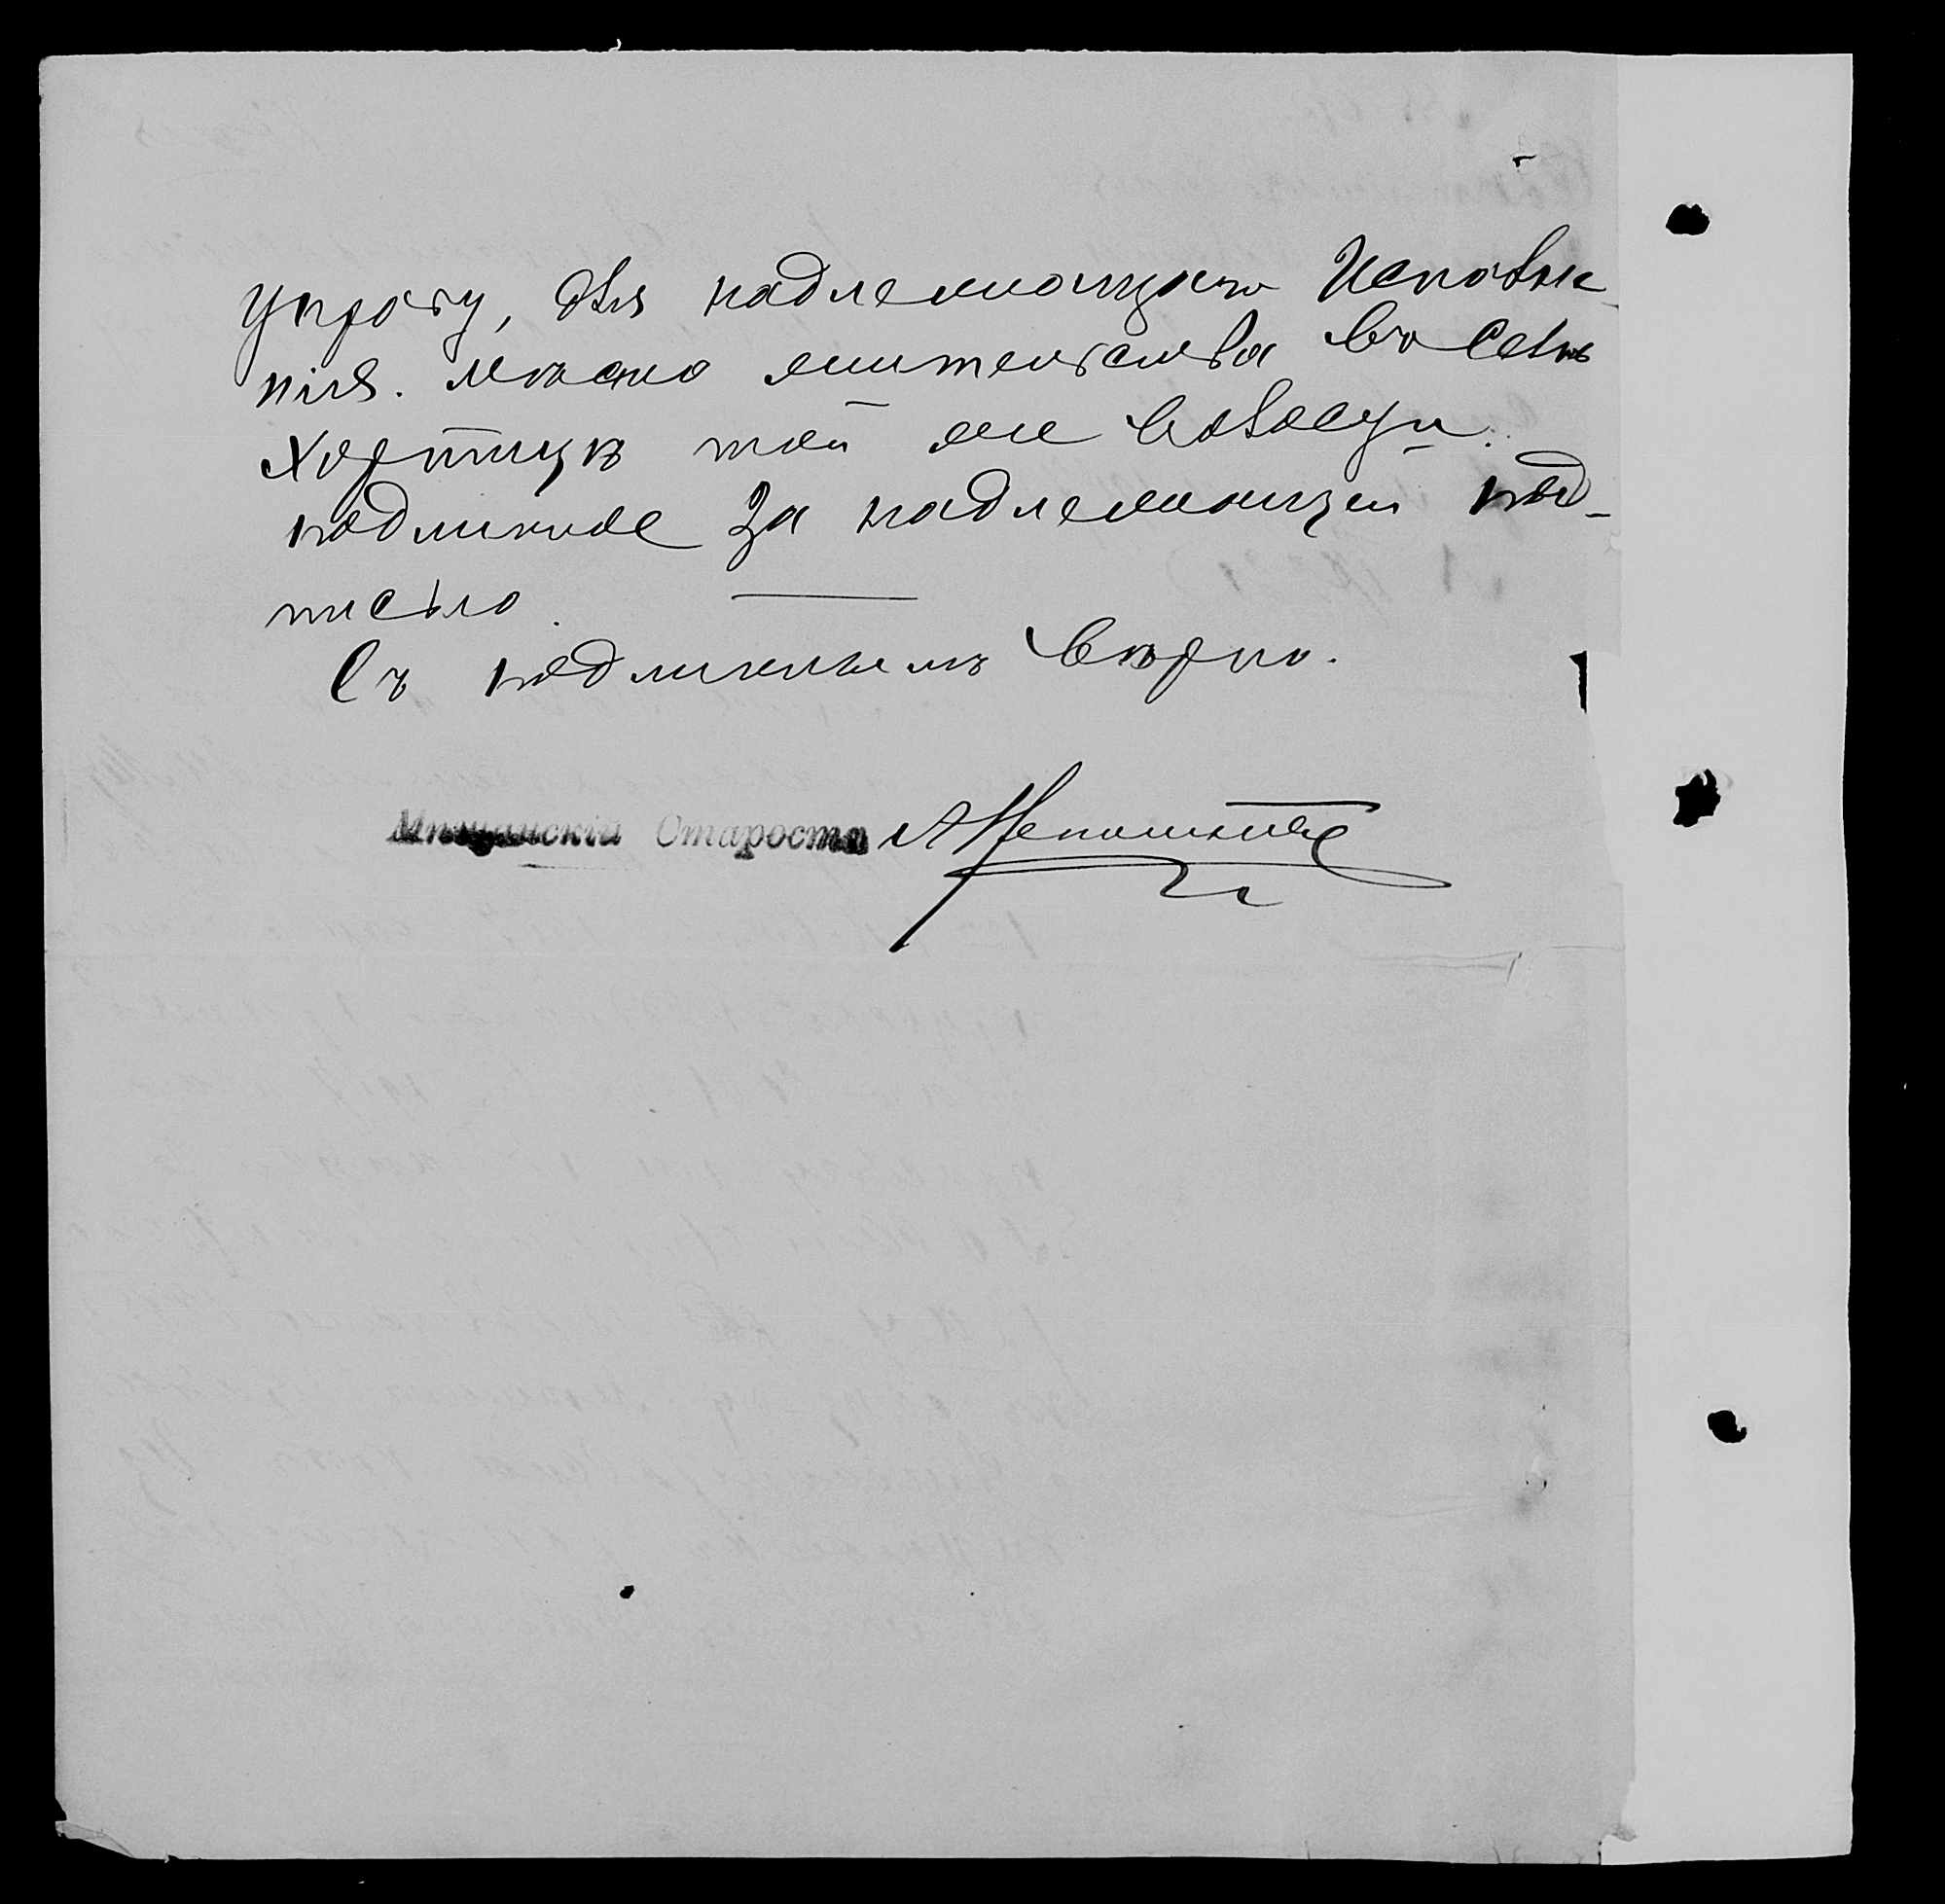 Управу, для надлежащаго Исполне-
нія. Мѣсто жительства въ Селѣ
Хортицѣ той же волости.
подлинное За надлежащей под-
писью.
Съ подлиннымъ вѣрно.
Мѣщанскій Староста